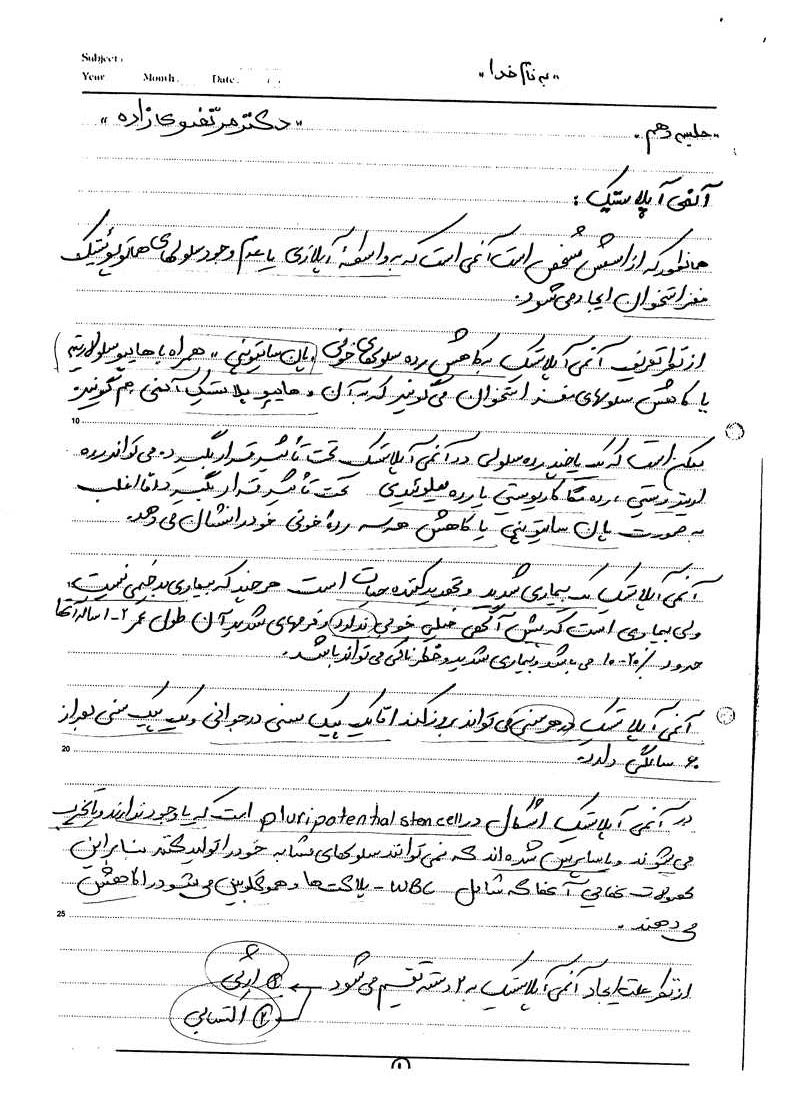 Subject:
Year Month. Date.
"به نام خدا"
"جلسه دهم" "دکتر مرتضوی زاده"
آنمی آپلاستیک:
همانطور که از اسمش مشخص است آنمی است که به واسطه آپلازی یا عدم وجود سلولهای هماتوپوئتیک
مغز استخوان ایجاد می شود.
از نظر تعریف آنمی آپلاستیک به کاهش رده سلولهای خونی "پان سایتوپنی" همراه با هایپوسلولاریته
یا کاهش سلولهای مغز استخوان می گویند که به آن هایپوپلاستیک آنمی هم گویند.
10
ممکن است که یک یا چند رده سلولی در آنمی آپلاستیک تحت تأثیر قرار بگیرد. می تواند رده
اریتروئیدی، رده مگاکاریوسیتی یا رده میلوئیدی تحت تأثیر قرار بگیرد و اما اغلب
به صورت پان سایتوپنی یا کاهش هر سه ردۀ خونی خود را نشان می دهد.
آنمی آپلاستیک یک بیماری شدید و تهدید کننده حیات است هر چند که بیماری بدخیمی نیست،
ولی بیماری است که پیش آگهی خیلی خوبی ندارد و فرمهای شدید آن طول عمر ۲-۱ ساله آنها
حدود ۲۰٪-۱۰ می باشد و بیماری شدید و خطرناکی می تواند باشد.
آنمی آپلاستیک در هر سنی می تواند بروز کند اما یک پیک سنی در جوانی و یک پیک سنی بعد از
20
۶۰ سالگی دارد.
در آنمی آپلاستیک اشکال در pluripotential stem cell است که یا وجود ندارند و یا تخریب
می شوند و یا ساپرس شده اند که نمی توانند سلولهای مشابه خود را تولید کنند بنابراین
محصولات نهایی آنها که شامل WBC - پلاکت ها و هموگلوبین می شود را کاهش
25
می دهند.
از نظر علت ایجاد آنمی آپلاستیک به ۲ دسته تقسیم می شود ← ① ارثی
② اکتسابی
۱